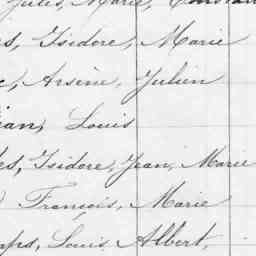 Jules, Marie,
Isidore, Marie
Arsène, Julien
Louis
Isidore, Jean, Marie
François, Marie
Louis Albert,